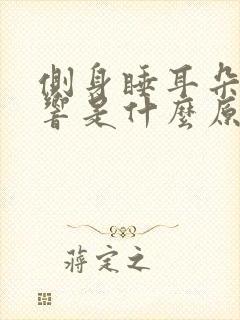 側身睡耳朵
響是什麼原
蔣定之